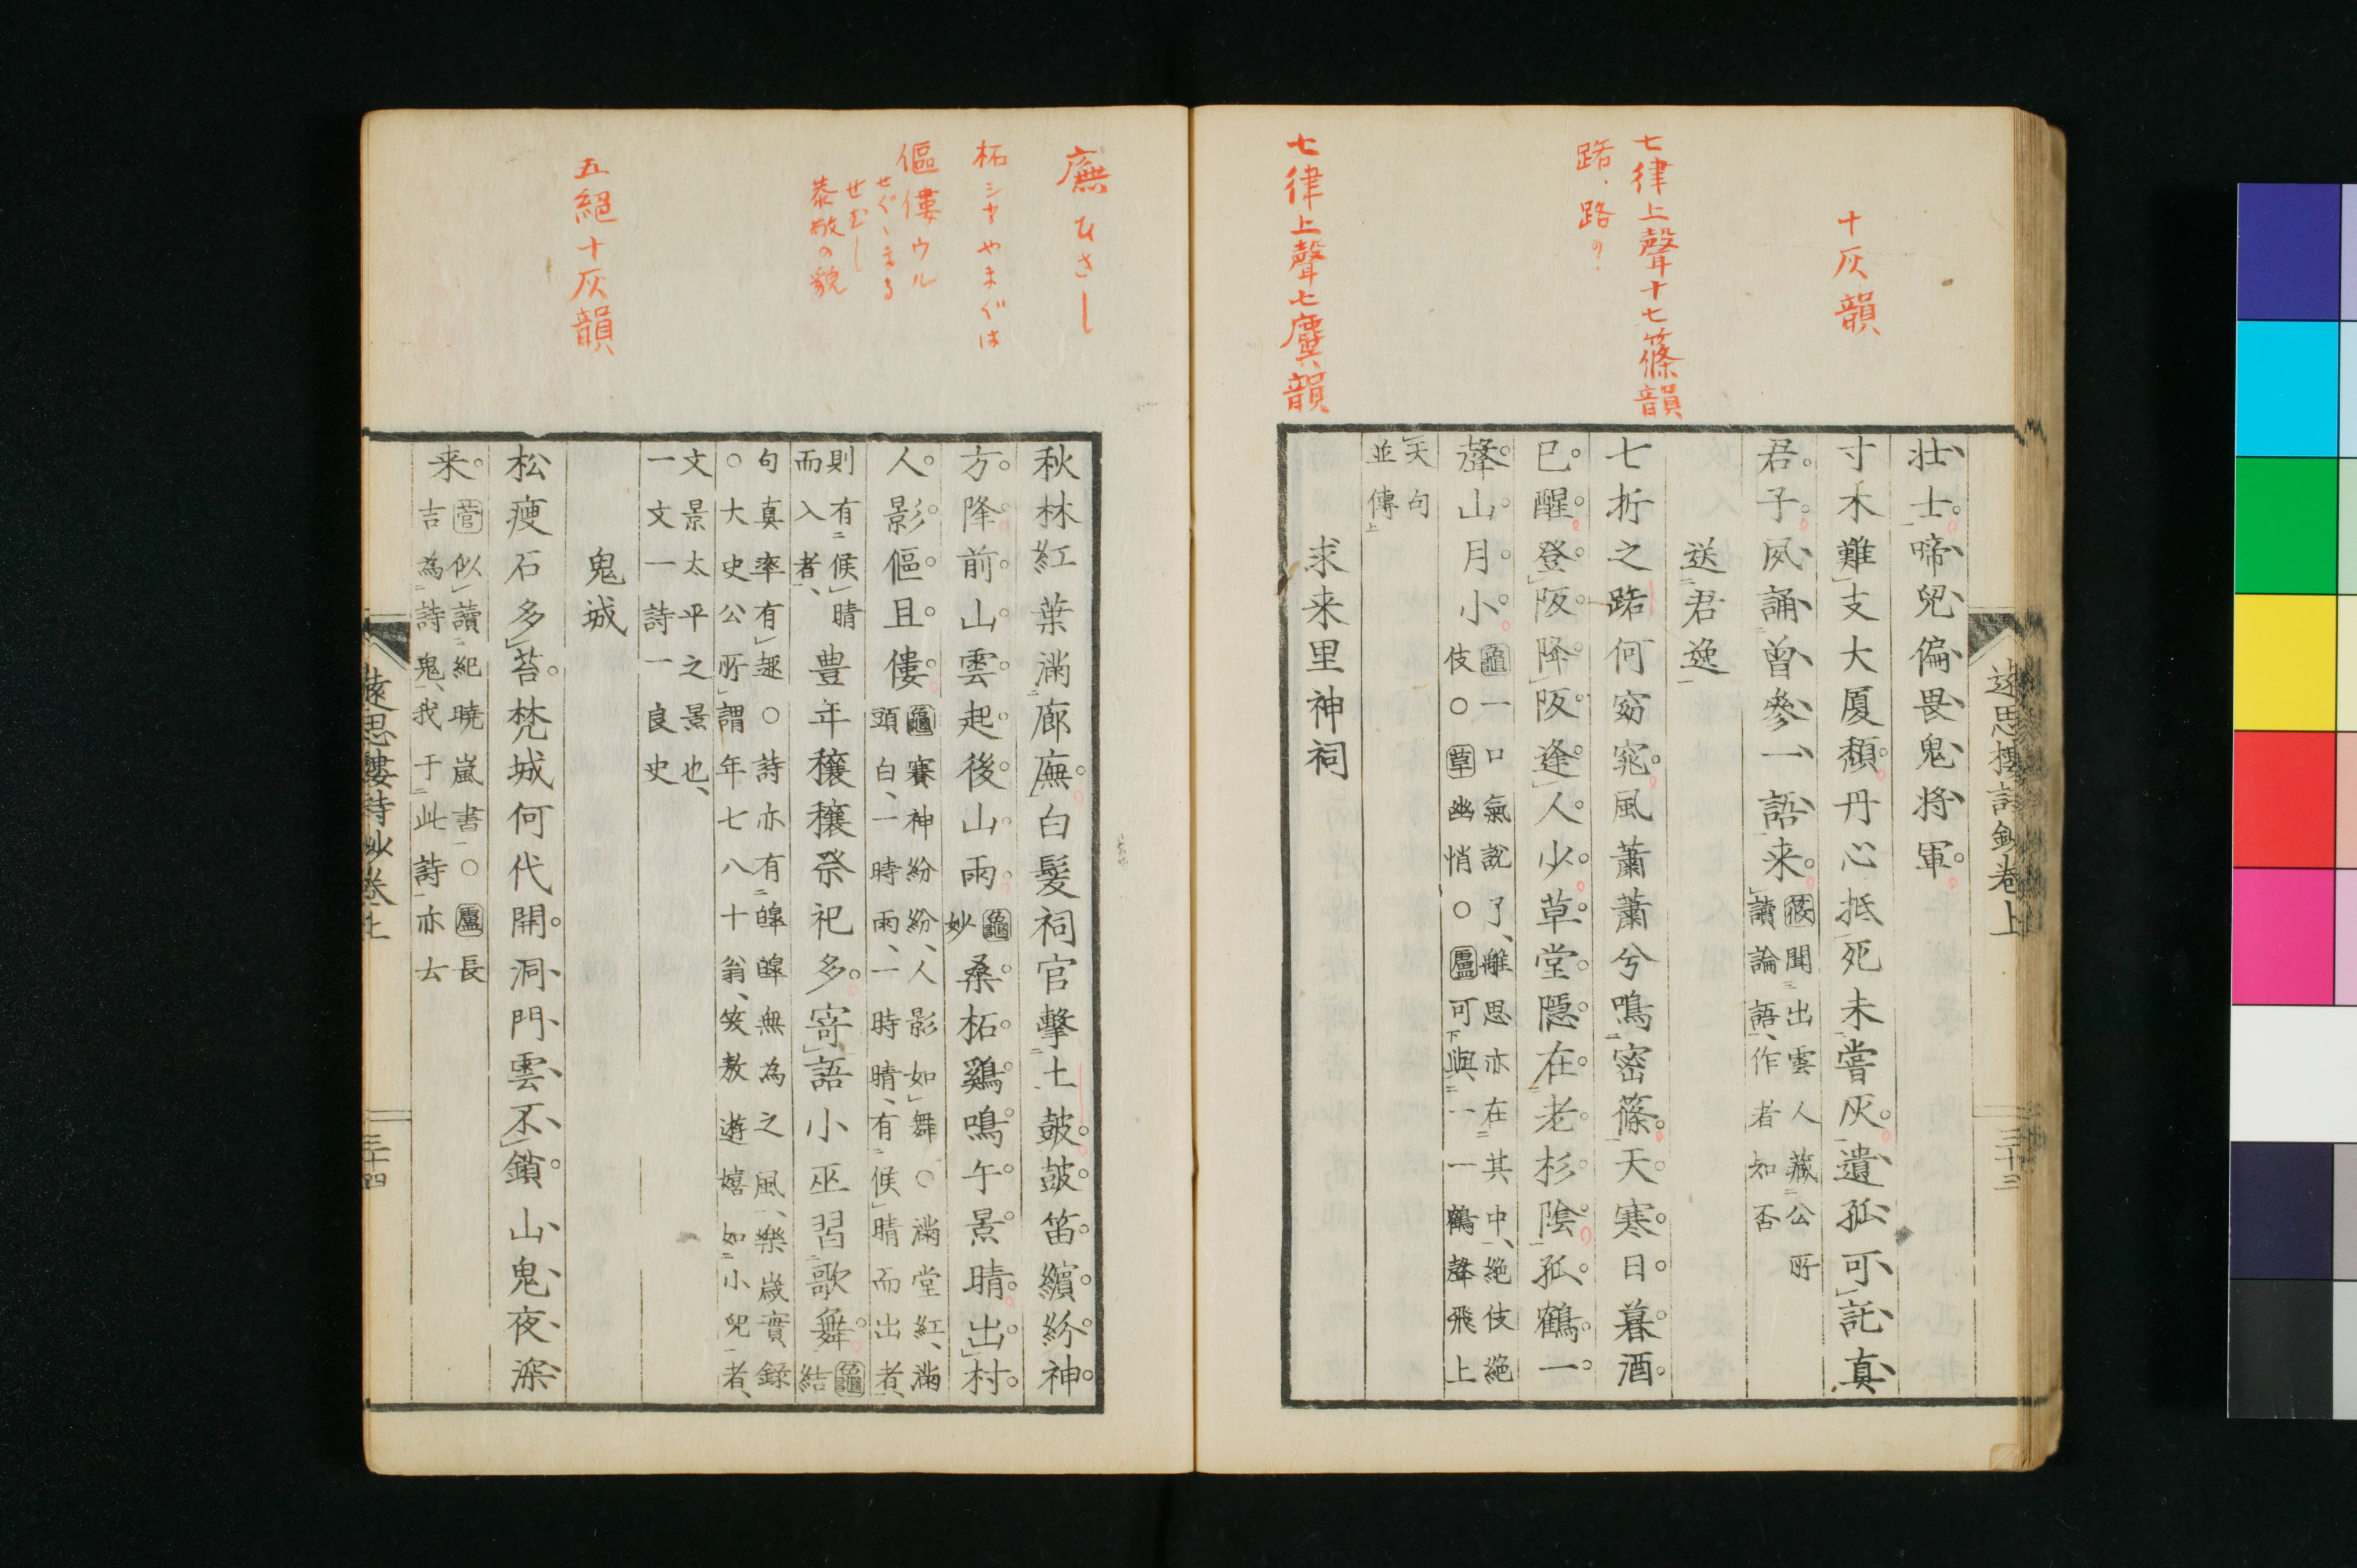 十灰韻
七律上聲十七篠韻
踏、路の?
七律上聲七麌韻
遠思樓詩鈔卷上
三十三
壯士啼兒偏畏鬼將軍
寸木難支大厦頽丹心抵死未嘗灰遺孤可託真
君子夙誦曾參一語来
筱聞出雲人藏公所
讀論語作者知否
送君逸
七折之踏何窈窕風蕭蕭兮鳴密篠天寒日暮酒
已醒登阪降阪逢人少草堂隱在老杉陰孤鶴一
聲山月小
龜一口氣說了雕思亦在其中絶伎絶
伎○草幽悄○盧可與一一鶴聲飛上
天句
並傳
求来里神祠
廡ひさし
柘シヤやまぐは
傴僂ウル
せぐゝまる
せむし
恭敬の貌
五絕十灰韻
秋林紅葉滿廊廡白髮祠官擊土鼓鼓笛繽紛神
方降前山雲起後山雨
龜
妙
桑柘鷄鳴午景晴出村
人影傴且僂
龜賽神紛紛、人影如舞○滿堂紅、滿
頭白、一時雨、一時晴、有候晴而出者、
則有候晴
而入者、
豊年穰穰祭祀多寄語小巫習歌舞
龜
結
句真率有趣○詩亦有皥皥無為之風、樂歲實錄
○大史公所謂年七八十翁、笑敖遊嬉如小兒者、
文景太平之景也、
一文一詩一良史
鬼城
松瘦石多苔梵城何代開洞門雲不鎖山鬼夜深
来
菅似讀紀曉嵐書○盧長
吉為詩鬼、我于此詩亦云
遠思樓詩鈔卷上
三十四